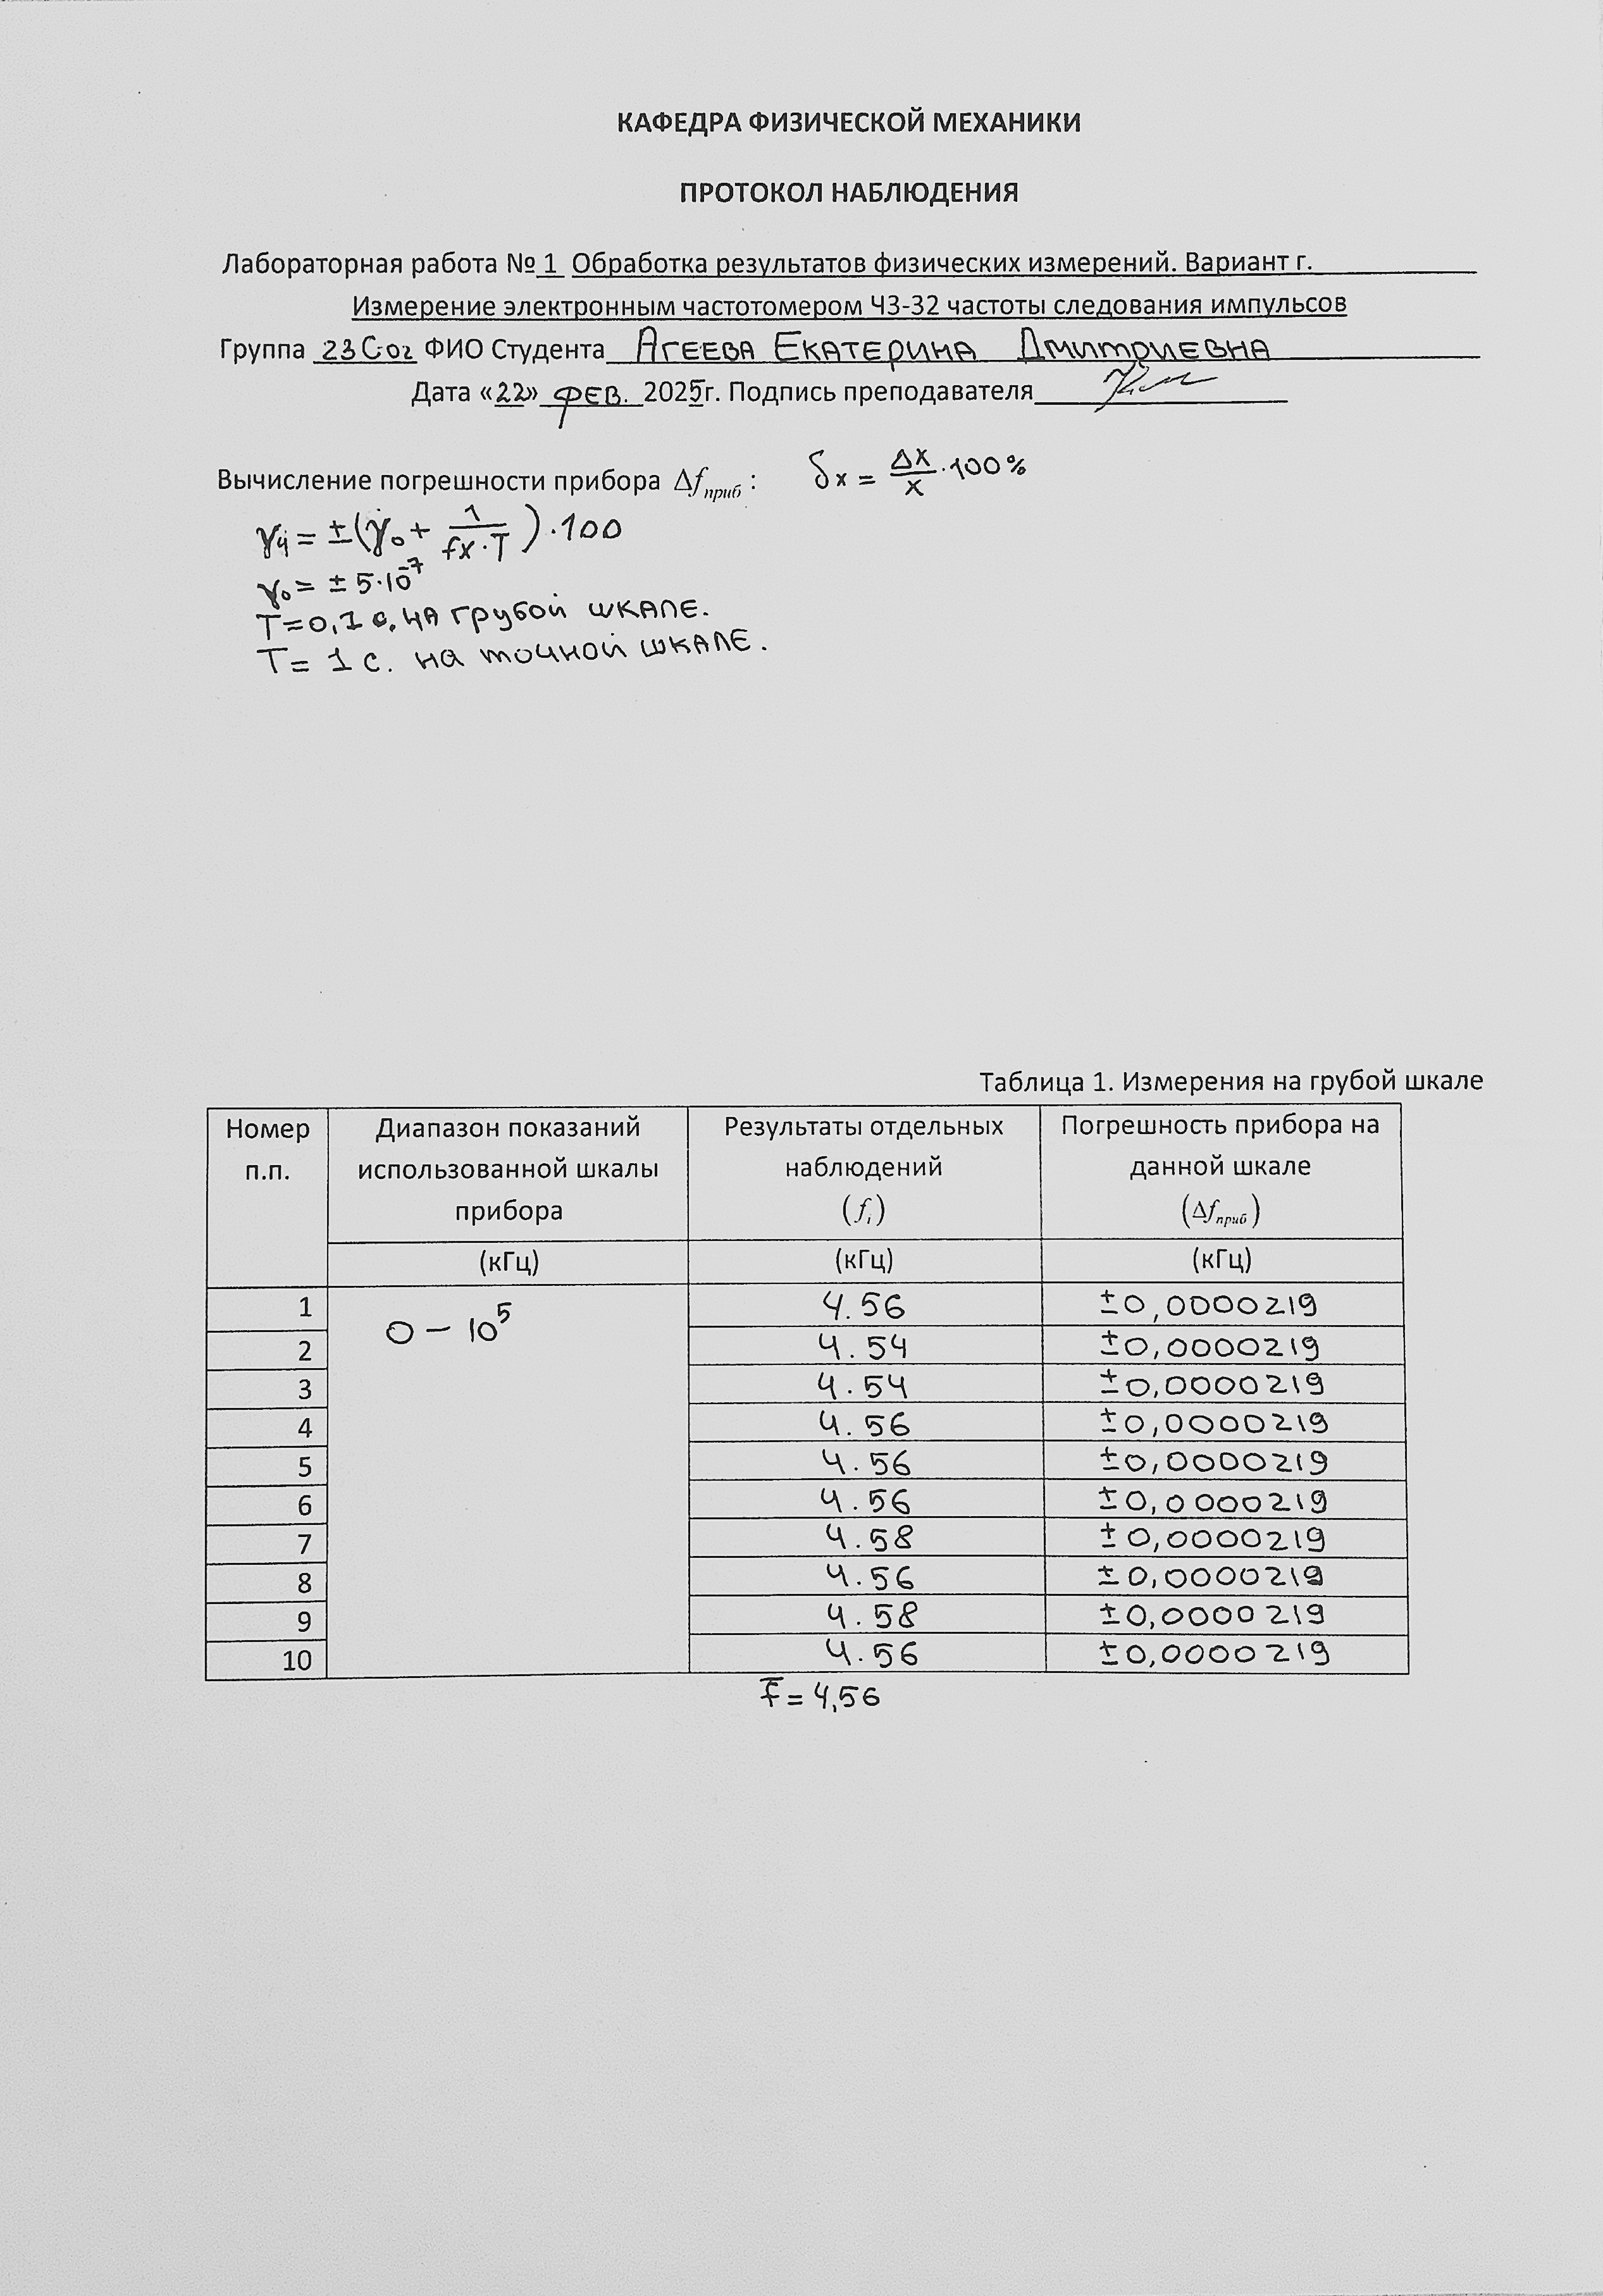 КАФЕДРА ФИЗИЧЕСКОЙ МЕХАНИКИ
ПРОТОКОЛ НАБЛЮДЕНИЯ
Лабораторная работа № 1 Обработка результатов физических измерений. Вариант г.
Измерение электронным частотомером Ч3-32 частоты следования импульсов
Группа 23С02 ФИО Студента АГЕЕВА ЕКАТЕРИНА ДМИТРИЕВНА
Дата «22» ФЕВ. 2025г. Подпись преподавателя
Вычисление погрешности прибора Δfприб : δx = Δx/x · 100%
γч = ±(γ₀ + 1/(fx·T)) · 100
γ₀ = ± 5·10⁻⁷
T=0,1 с. НА грубой шкале.
T= 1 с. на точной шкале.
Таблица 1. Измерения на грубой шкале
Номер п.п. Диапазон показаний использованной шкалы прибора Результаты отдельных наблюдений (fᵢ) Погрешность прибора на данной шкале (Δfприб)
(кГц) (кГц) (кГц)
1 0 – 10⁵ 4.56 ±0,0000219
2 4.54 ±0,0000219
3 4.54 ±0,0000219
4 4.56 ±0,0000219
5 4.56 ±0,0000219
6 4.56 ±0,0000219
7 4.58 ±0,0000219
8 4.56 ±0,0000219
9 4.58 ±0,0000219
10 4.56 ±0,0000219
f̅ = 4,56